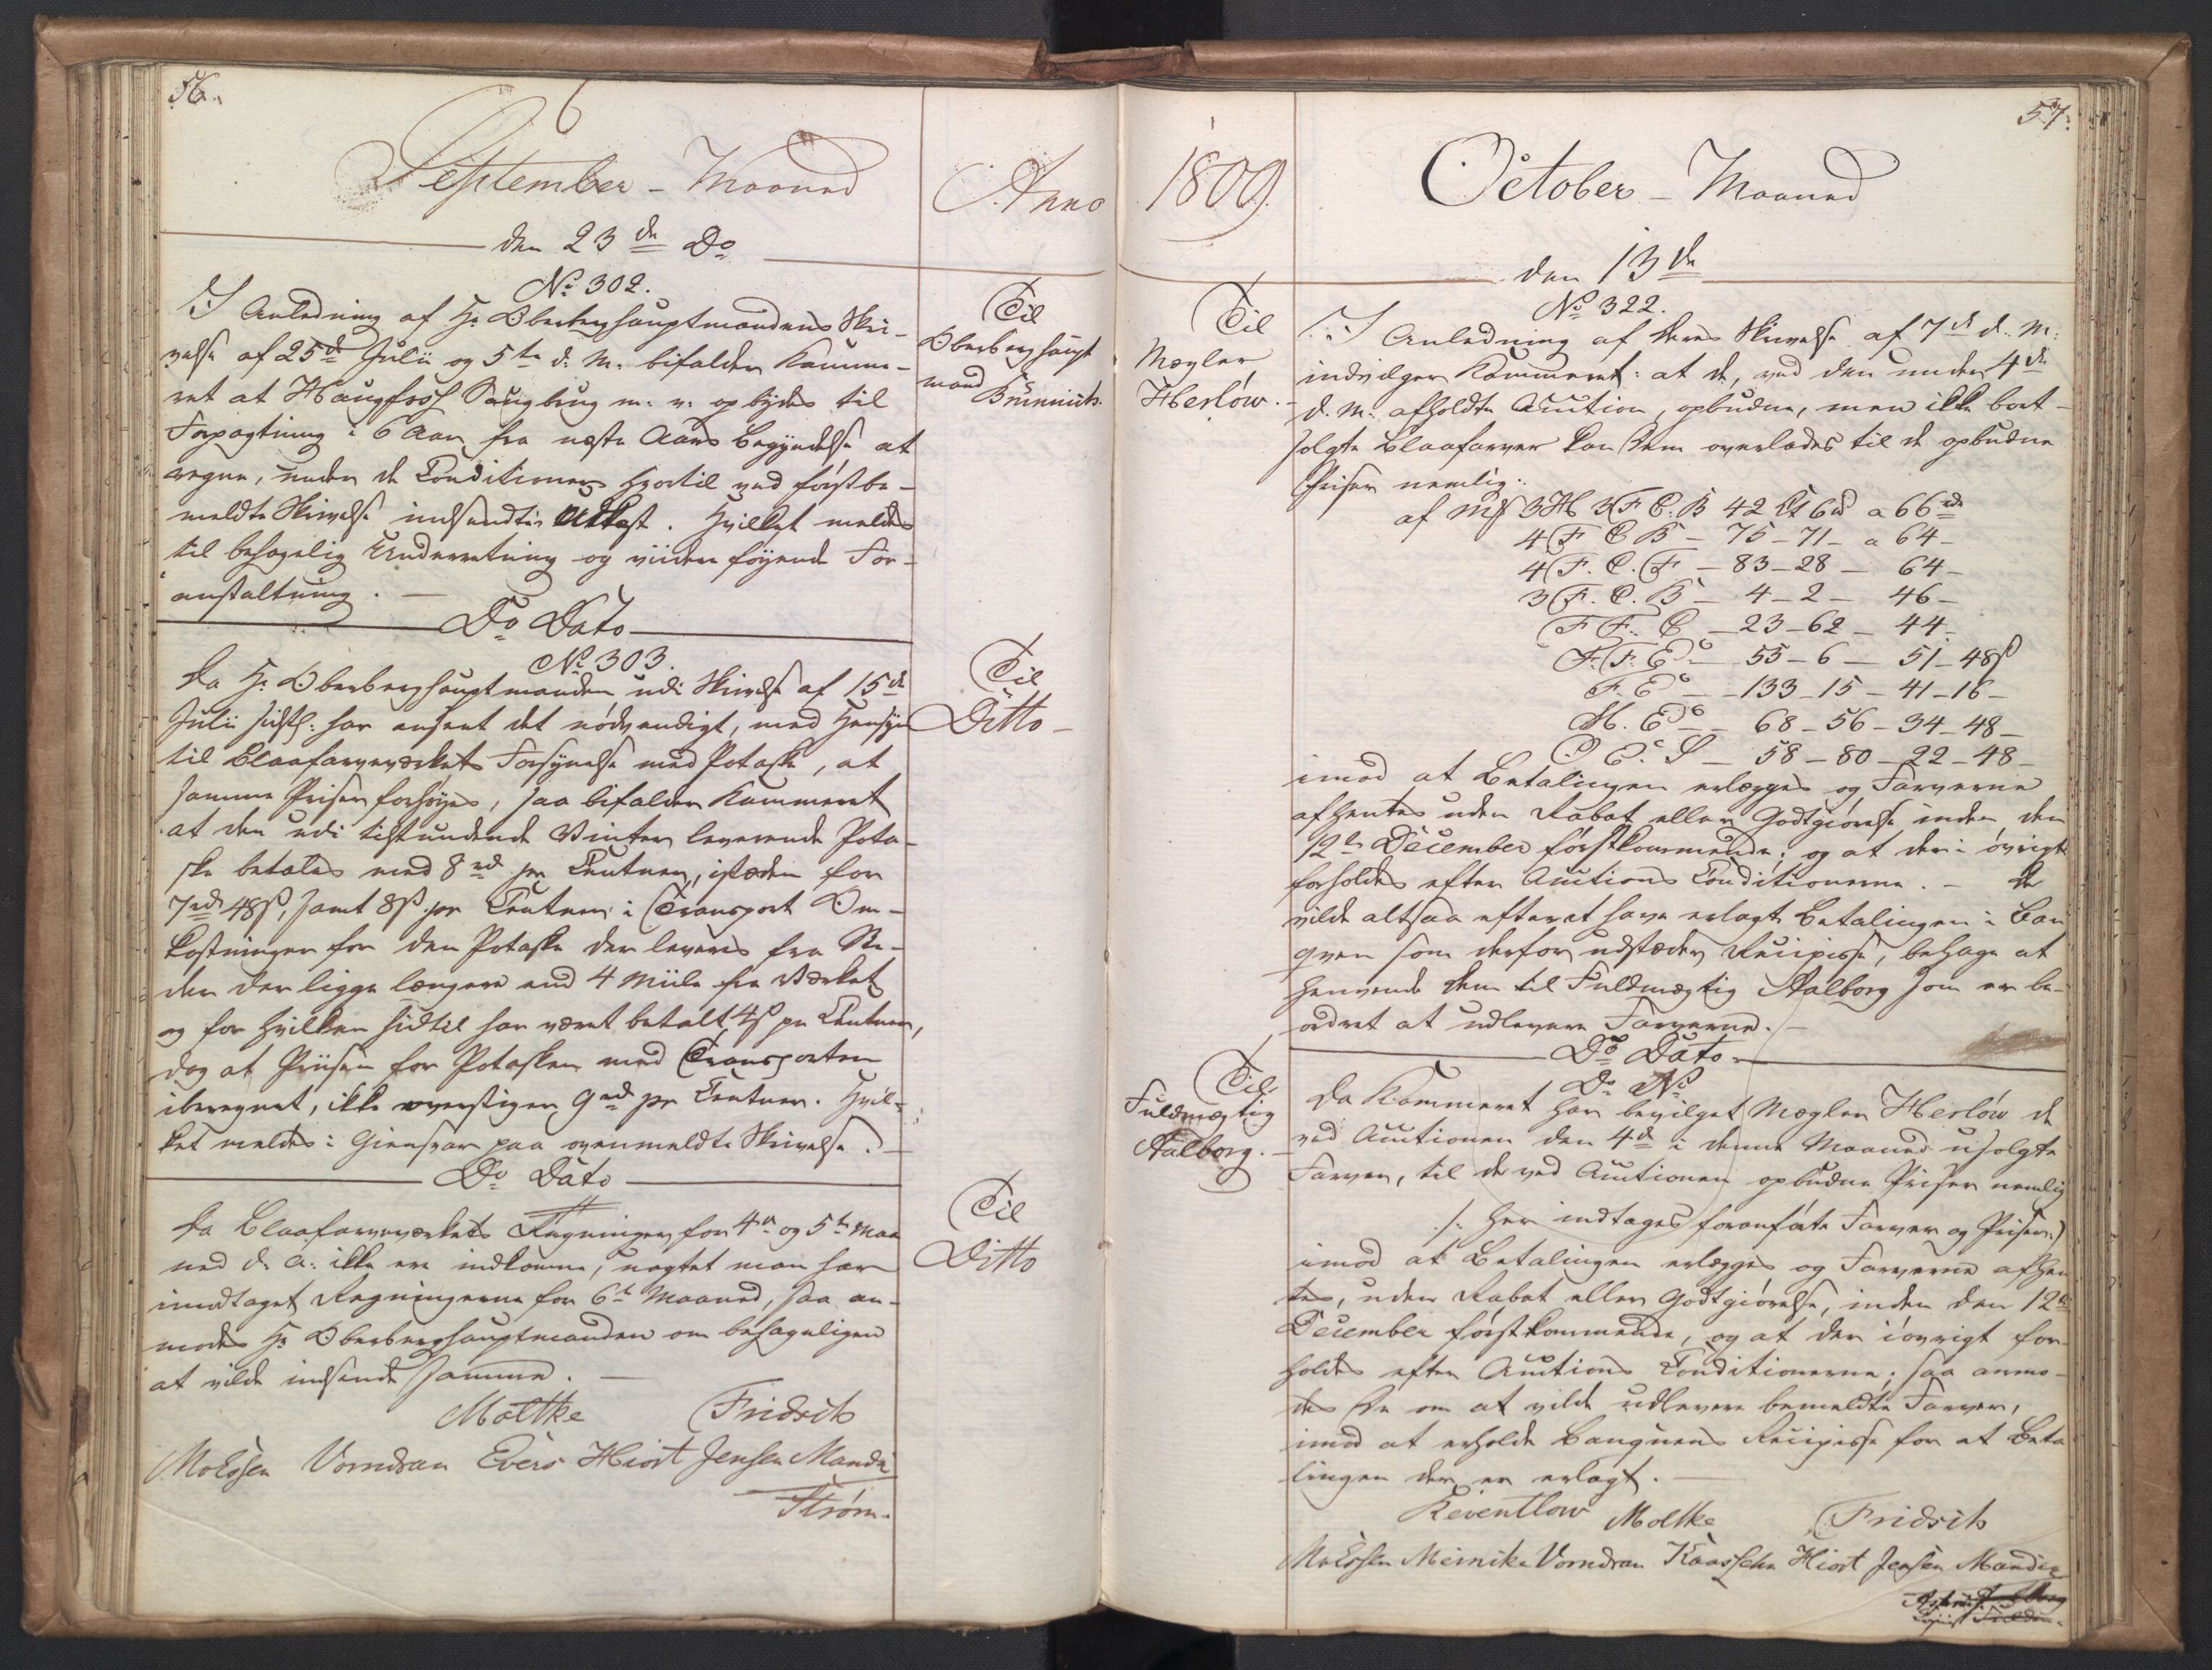 56.
September - Maaned
Anno
den 23de Do
No 302.
Til
Oberberghaupt
mand
Brünnich.
I Anledning af Hr Oberberghauptmandens Skri-
velse af 25de Julii og 5te d. M. bifalder Kamme-
ret at Haugfoss Saugbrug m. v. opbydes til
Forpagtning i 6 Aar fra næste Aars Begyndelse at
regne, under de Conditioner hvortil ved førstbe-
meldte Skrivelse indsendtes Udkast. Hvilket meldes
til behagelig Underretning og viidere føyende For-
anstaltning. —
Do Dato
No 303.
Til
Ditto
Da Hr Oberberghauptmanden udi Skrivelse af 15de
Julii sidstl: har anseet det nødvendigt, med Hensyn
til Blaafarveværkets Forsynelse med Potaske, at
samme Priser forhøyes, saa bifalder Kammeret
at den udi tilstundende Vinter leverende Pota-
ske betales med 8 rd pr Centner, istæden for
7 rd 48 s, samt 8 s pr Centner i Transport Om-
kostninger for den Potaske der leveres fra Ste-
der der ligge længere end 4 Miile fra Værket
og for hvilken hidtil har været betalt 4 s pr Centner,
dog at Priisen for Potasken med Transporten
iberegnet, ikke overstiger 9 rd pr Centner. Hvil-
ket meldes i Giensvar paa ovenmeldte Skrivelse. —
Do Dato
Til
Ditto
Da Blaafarveværkets Regninger for 4de og 5te Maa
ned d. A. ikke ere indkomne, uagtet man har
imodtaget Regningerne for 6te Maaned, saa an-
modes Hr Oberberghauptmanden om behageligen
at vilde indsende samme. —
Moltke Fridsch
Moessen Vorndran Evers Hiort Jensen Mandix
Strøm.
57.
1809.
October - Maaned
den 13de
No 322.
Til
Mægler
Herløw.
I Anledning af Deres Skrivelse af 7de d. M.
indvilger Kammeret: at de, ved den under 4de
d. M. afholdte Auction, opbudne, men ikke bort-
solgte Blaafarver kan Dem overlades til de opbudne
Priser nemlig:
af 3H 3 F. C. B 42 Ct 6 a 66 rd
4 F C B — 75 — 71 — a 64 —
4 F. C. F — 83 — 28 — 64 —
3 F. C. B — 4 — 2 — 46 —
F F. C — 23 — 62 — 44 —
F. F. E — 55 — 6 — 51 — 48 s
F. E — 133 — 15 — 41 — 16 —
M. E — 68 — 56 — 34 — 48 —
O E. S — 58 — 80 — 22 — 48 —
imod at Betalingen erlægges og Farverne
afhentes uden Rabat eller Godtgiørelse inden den
12te December førstkommende; og at der i øvrigt
forholdes efter Auctions Conditionerne. — De
vilde altsaa efter at have erlagt Betalingen i Ban
qven som derfor udstæder Recipisse, behage at
henvende Dem til Fuldmægtig Aalborg som er be-
ordret at udlevere Farverne. —
Do Dato
Do No
Til
Fuldmægtig
Aalborg.
Da Kammeret har bevilget Mægler Herløw de
ved Auctionen den 4de i denne Maaned usolgte
Farver, til de ved Auctionen opbudne Priser nemlig
/: her indtages foranførte Farver og Priser:)
imod at Betalingen erlægges og Farverne afhen
tes, uden Rabat eller Godtgiørelse, inden den 12te
December førstkommende, og at der iøvrigt for
holdes efter Auctions Conditionerne; saa anmo-
des De om at vilde udlevere bemeldte Farver,
imod at erholde Banquens Recipisse for at Beta
lingen der er erlagt. —
Reventlow Moltke Fridsch
Moessen Meinike Vorndran Kaasschen Hiort Jensen Mandix